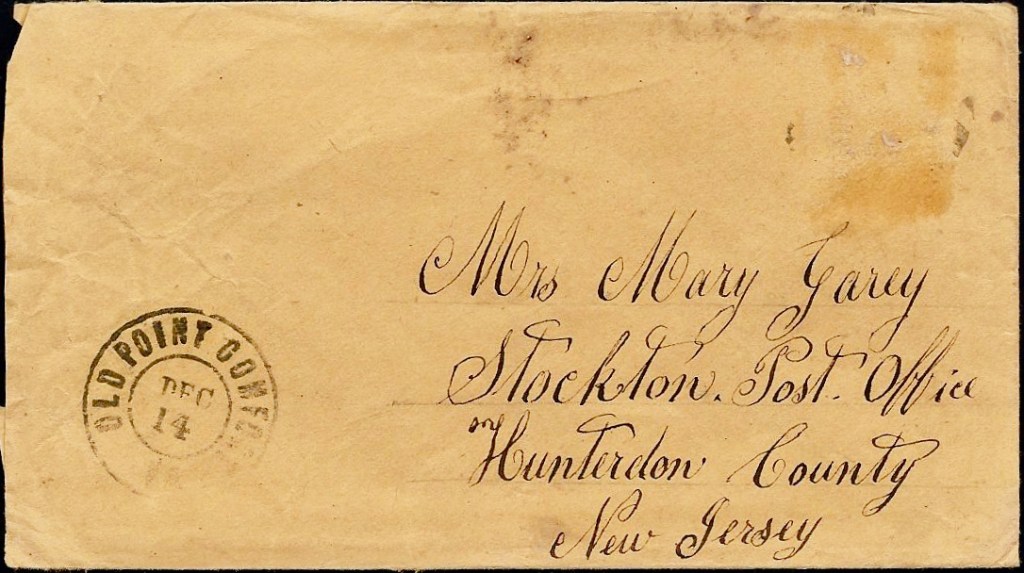 Mrs Mary Garey
Stockton. Post. Office
Hunterdon County
New Jersey
OLD POINT COMFO
DEC
14